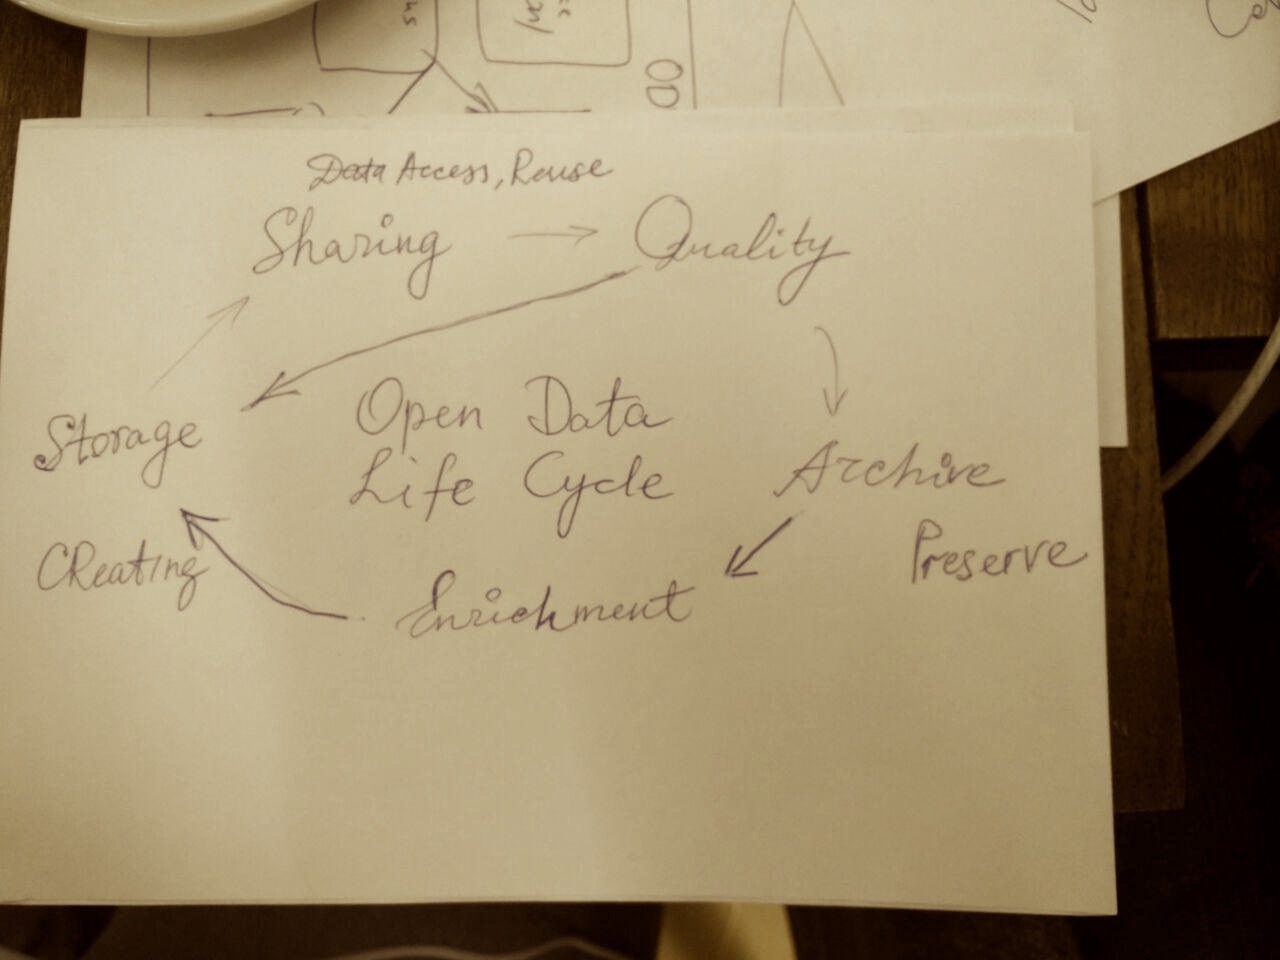 OD
Data Access, Reuse
Sharing
Quality
Storage
Open Data
Life Cycle
Archive
CReating
Preserve
Enrichment